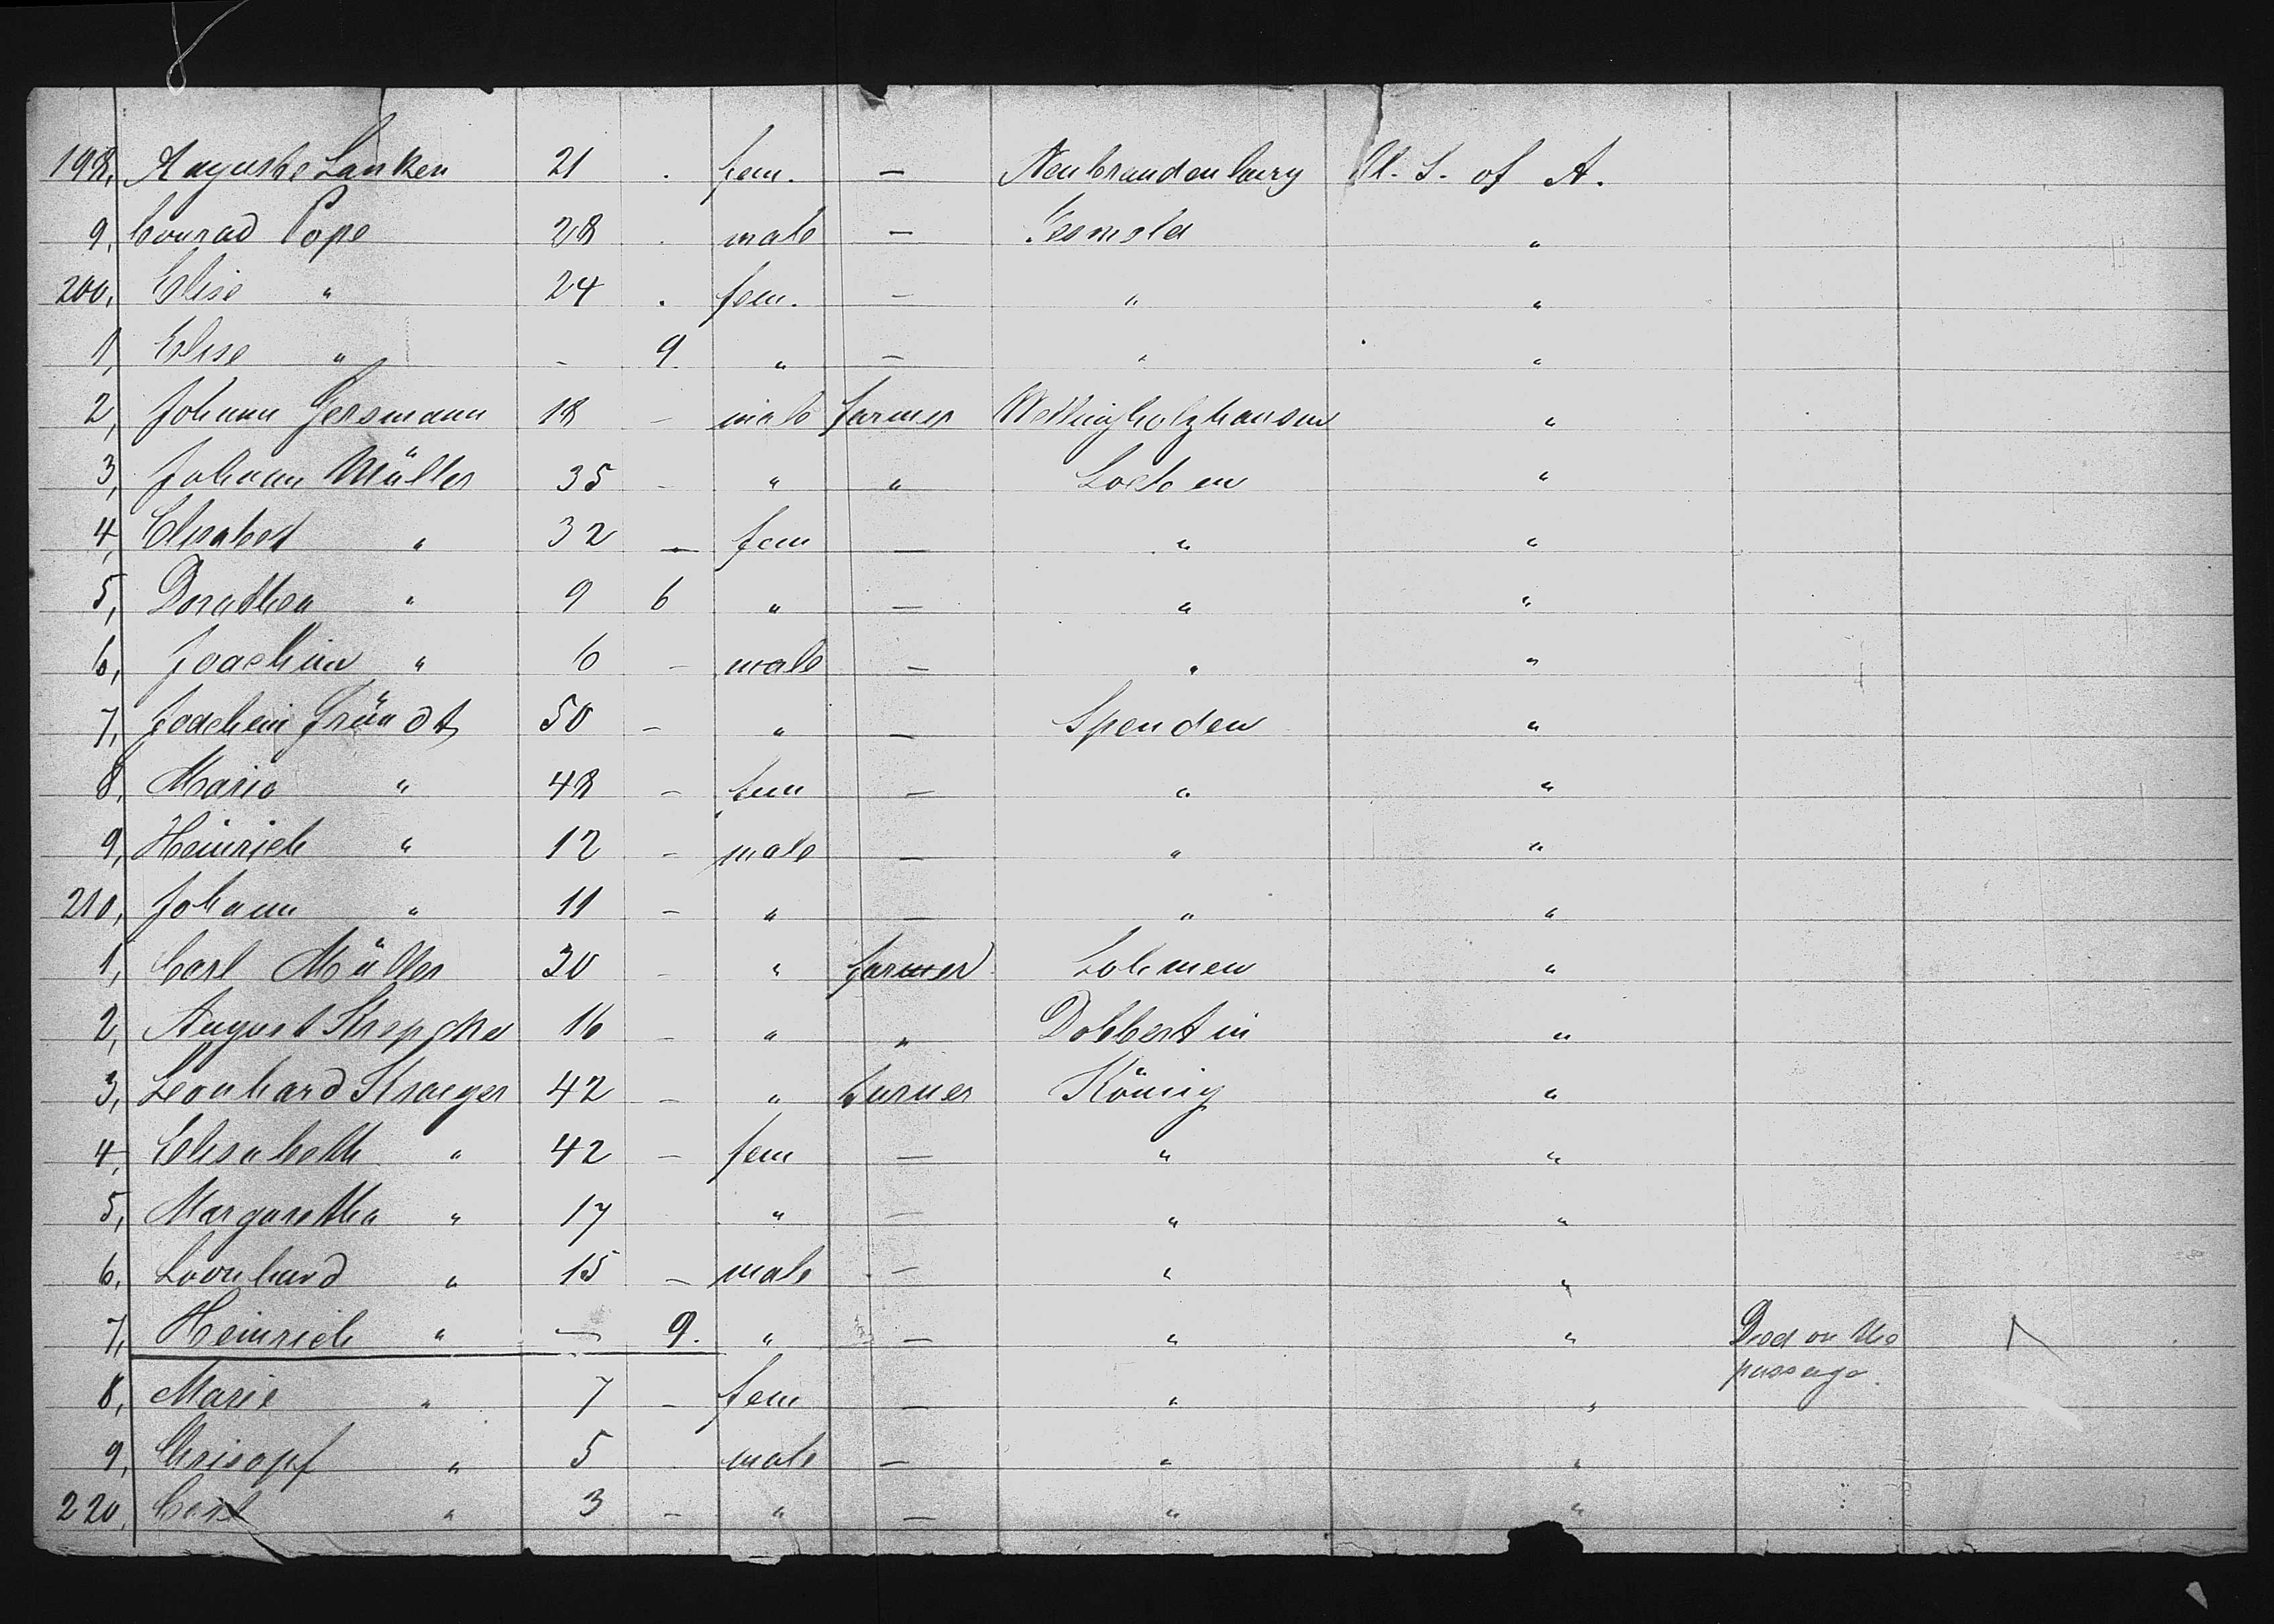 198, Auguste Lanken 21 . fem. — Neubrandenburg U. S. of A.
9, Conrad Pope 28 . male — Gesmold "
200, Elise " 24 . fem. — " "
1, Elise " - 9 " — " "
2, Johann Gersmann 18 - male farmer Wellingholzhausen "
3, Johann Müller 35 - " " "
4, Elisabet " 32 — fem — " "
5, Dorothea " 9 6 " — " "
6, Joachim " 6 - male — " "
7, Joachim Gründt 50 - " — Spenden "
8, Marie " 48 - fem — " "
9, Heinrich " 12 - male — " "
210, Johann " 11 - " — " "
1, Carl Müller 30 - " farmer Lohmen "
2, August 16 - " " Dobbertin "
3, Leonhard Straeger 42 - " farmer König "
4, Elisabeth " 42 - fem — " "
5, Margaretha " 17 " — " "
6, Leonhard " 15 - male — " "
7, Heinrich " — 9. " — " " Died on the
passage.
8, Marie " 7 - fem — " "
9, Chrisopf " 5 male — " "
220, Carl " 3 - " — " "